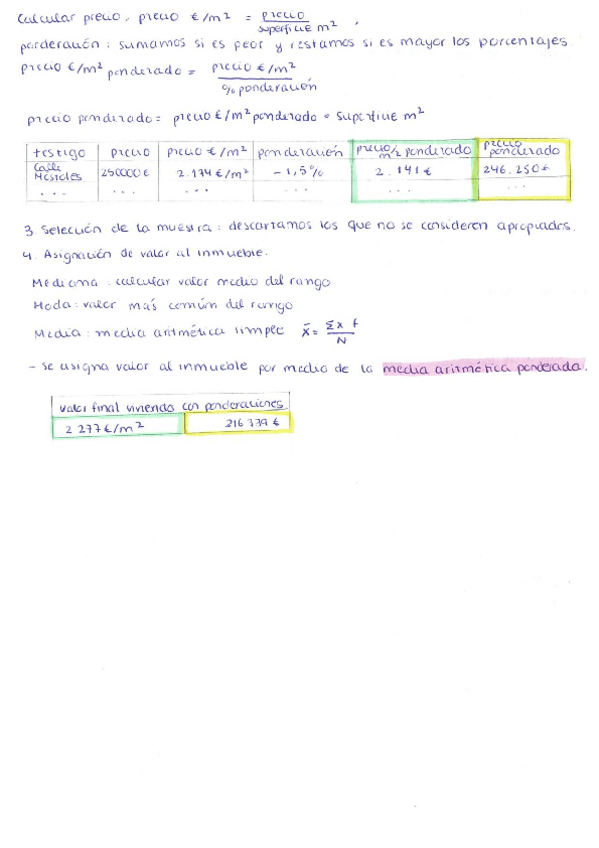 Calcular precio, precio €/m² = precio / superficie m²,
ponderación: sumamos si es peor y restamos si es mayor los porcentajes.
precio €/m² ponderado = precio €/m² / % ponderación
precio ponderado = precio €/m² ponderado * superficie m²
testigo precio precio €/m² ponderación precio/m² ponderado precio ponderado
Calle Móstoles 250000€ 2.174€/m² -1,5% 2.141€ 246.250€
... ... ... ... ... ...
3. Selección de la muestra: descartamos los que no se consideren apropiados.
4. Asignación de valor al inmueble.
Mediana: calcular valor medio del rango
Moda: valor más común del rango
Media: media aritmética simple x̄ = Σx f / N
- se asigna valor al inmueble por medio de la media aritmética ponderada.
valor final vivienda con ponderaciones
2 277€/m² 216 339 €